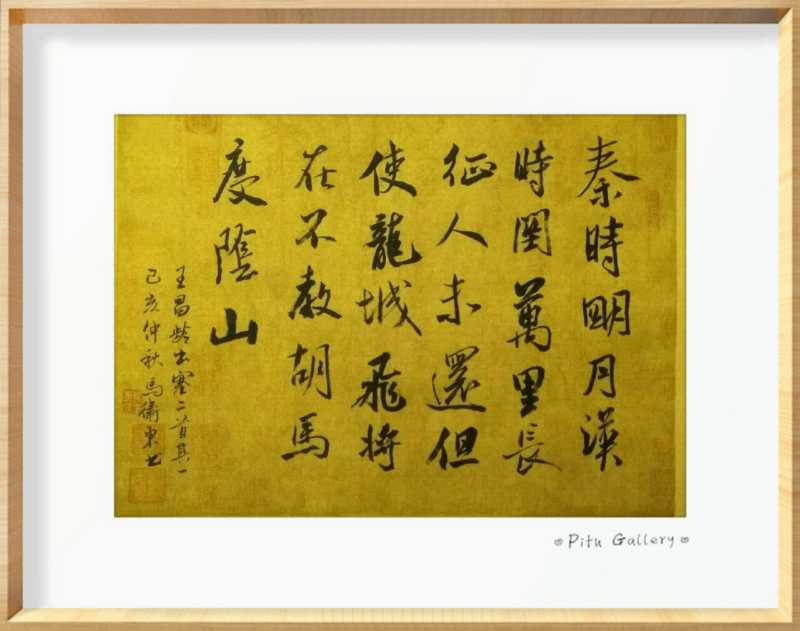 秦時明月漢
時關萬里長
征人未還但
使龍城飛將
在不教胡馬
度陰山
王昌齡出塞二首其一
己亥仲秋馬衛東书
Pitu Gallery